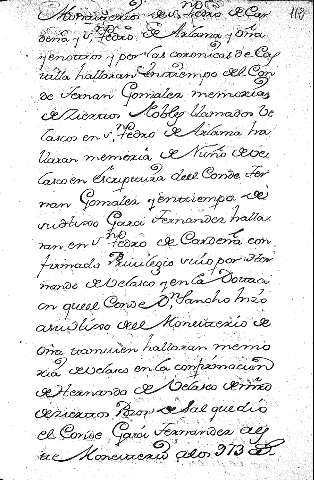 112
Monasterio de S. Pedro de Car
deña y S. Pedro de Arlanza y oña
y en otros y por las coronicas de Cas
tilla hallaran en tiempo del Con
de Fernan Gonzalez memorias
de ziertos Nobles llamados Ve
lascos en S. Pedro de Arlanza ha
llaran memoria de Nuño de Ve
lasco en escriptura del Conde Fer
nan Gonzalez y en tiempo de
su hijo Garci Fernandez halla
ran en S. Pedro de Cardeña con
firmado Privilegio suio por Her
nando de Velasco y en la Dotaci
on que el Conde Dn Sancho hizo
a su hijo del Monesterio de
oña tamvien hallaran memo
ria de Velasco en la confirmacion
de Hernando de Velasco
de ziertos de Sal que dio
el Conde Garci Fernandez
Monesterio a los 973